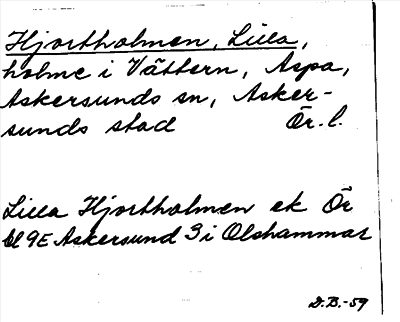 Hjortholmen, Lilla,
holme i Vättern, Aspa,
Askersunds sn, Asker-
sunds stad Ör. l.
Lilla Hjortholmen ek Ör
bl 9E Askersund 3 i Olshammar
D.B.-59